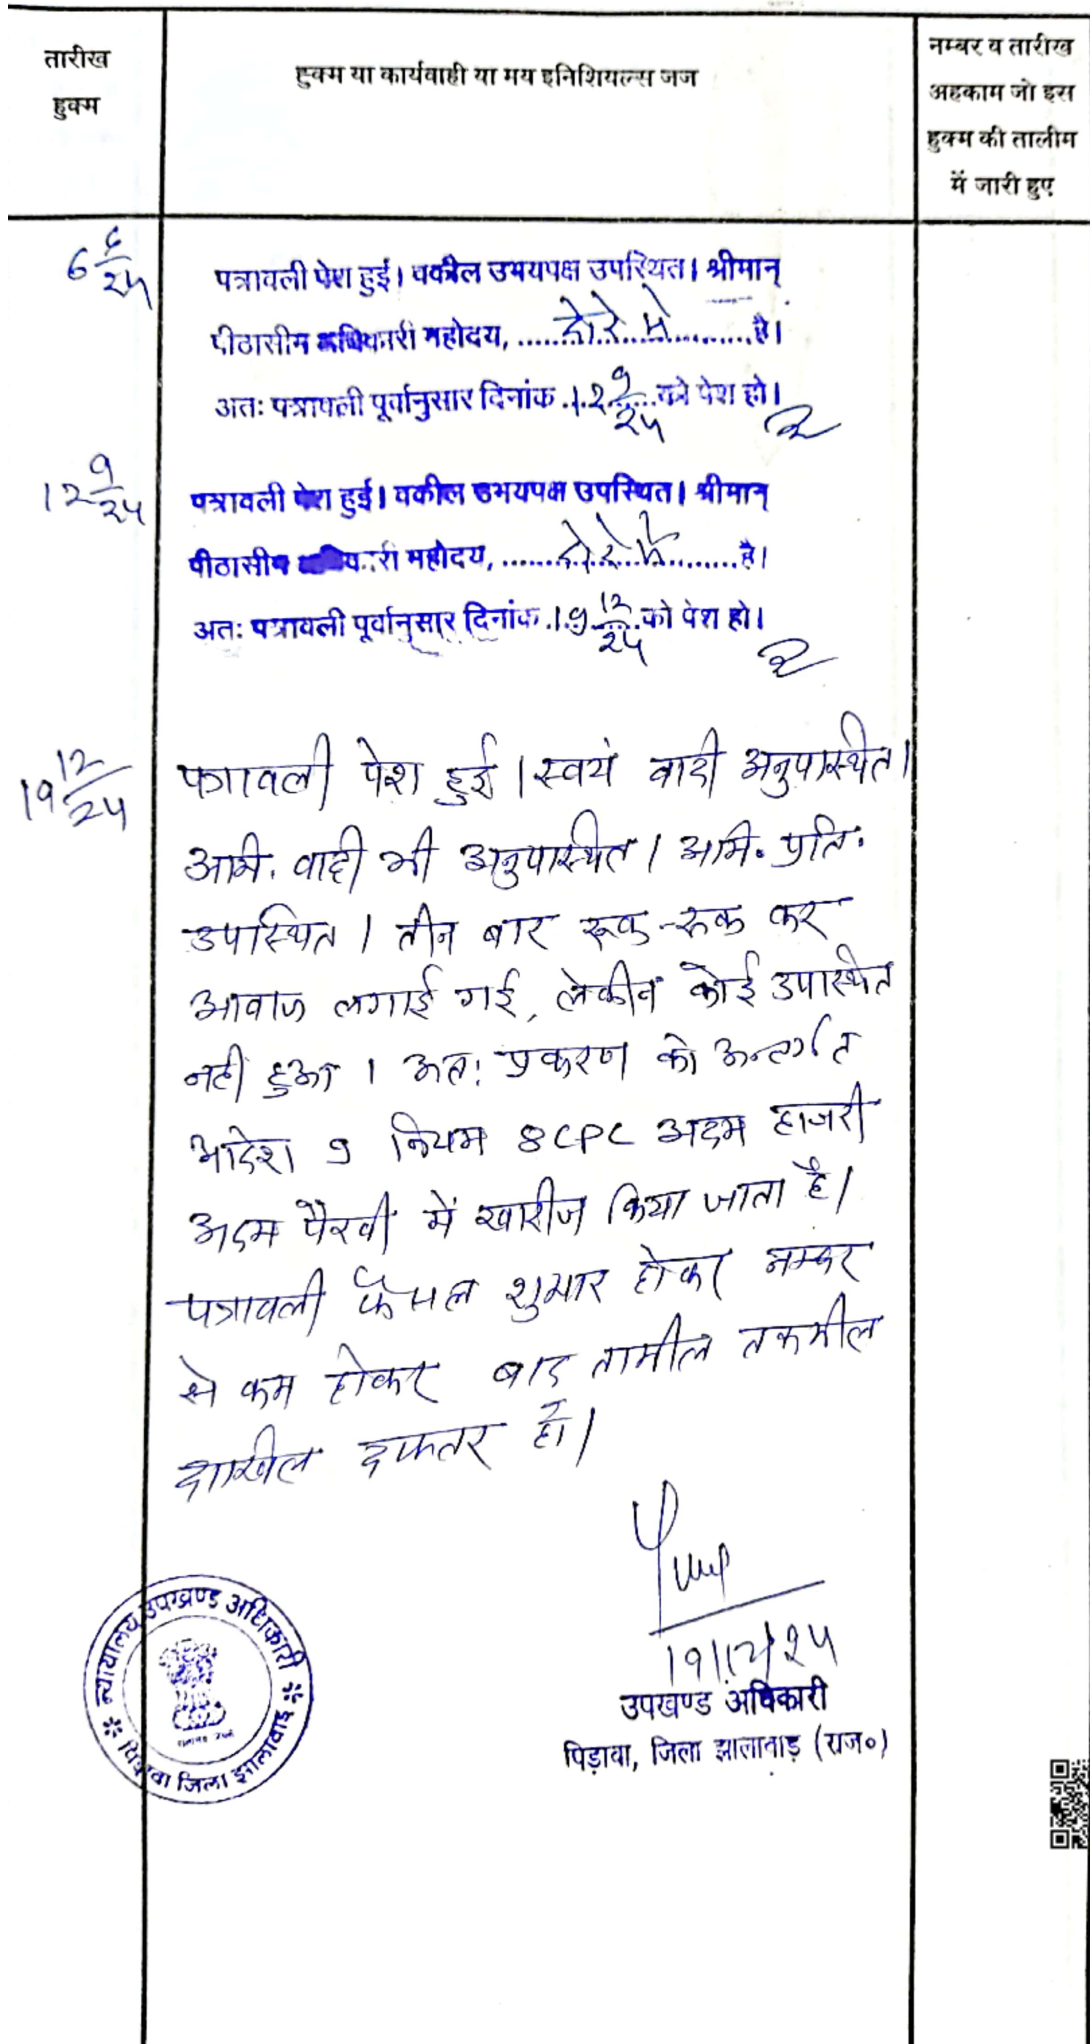 तारीख
हुक्म
हुक्म या कार्यवाही या मय इनिशियल्स जज
नम्बर व तारीख
अहकाम जो इस
हुक्म की तालीम
में जारी हुए
6 6/24
पत्रावली पेश हुई। वकील उभयपक्ष उपस्थित। श्रीमान्
पीठासीन अधिकारी महोदय, ......दौरे मे......है।
अतः पत्रावली पूर्वानुसार दिनांक .12 9/24 को पेश हो।
12 9/24
पत्रावली पेश हुई। वकील उभयपक्ष उपस्थित। श्रीमान्
पीठासीन अधिकारी महोदय, ......दौरे में......है।
अतः पत्रावली पूर्वानुसार दिनांक .19 12/24 को पेश हो।
19 12/24
पत्रावली पेश हुई। स्वयं वादी अनुपस्थित।
अभि. वादी भी अनुपस्थित। अभि. प्रति.
उपस्थित। तीन बार रूक-रूक कर
आवाज लगाई गई, लेकीन कोई उपस्थित
नही हुआ। अतः प्रकरण को अन्तर्गत
आदेश 9 नियम 8 CPC अदम हाजरी
अदम पैरवी में खारीज किया जाता है।
पत्रावली फैसल शुमार होकर नम्बर
से कम होकर बाद तामील तकमील
दाखील दफ्तर हो।
19/12/24
उपखण्ड अधिकारी
पिड़ावा, जिला झालावाड़ (राज०)
न्यायालय उपखण्ड अधिकारी
पिड़ावा जिला झालावाड़